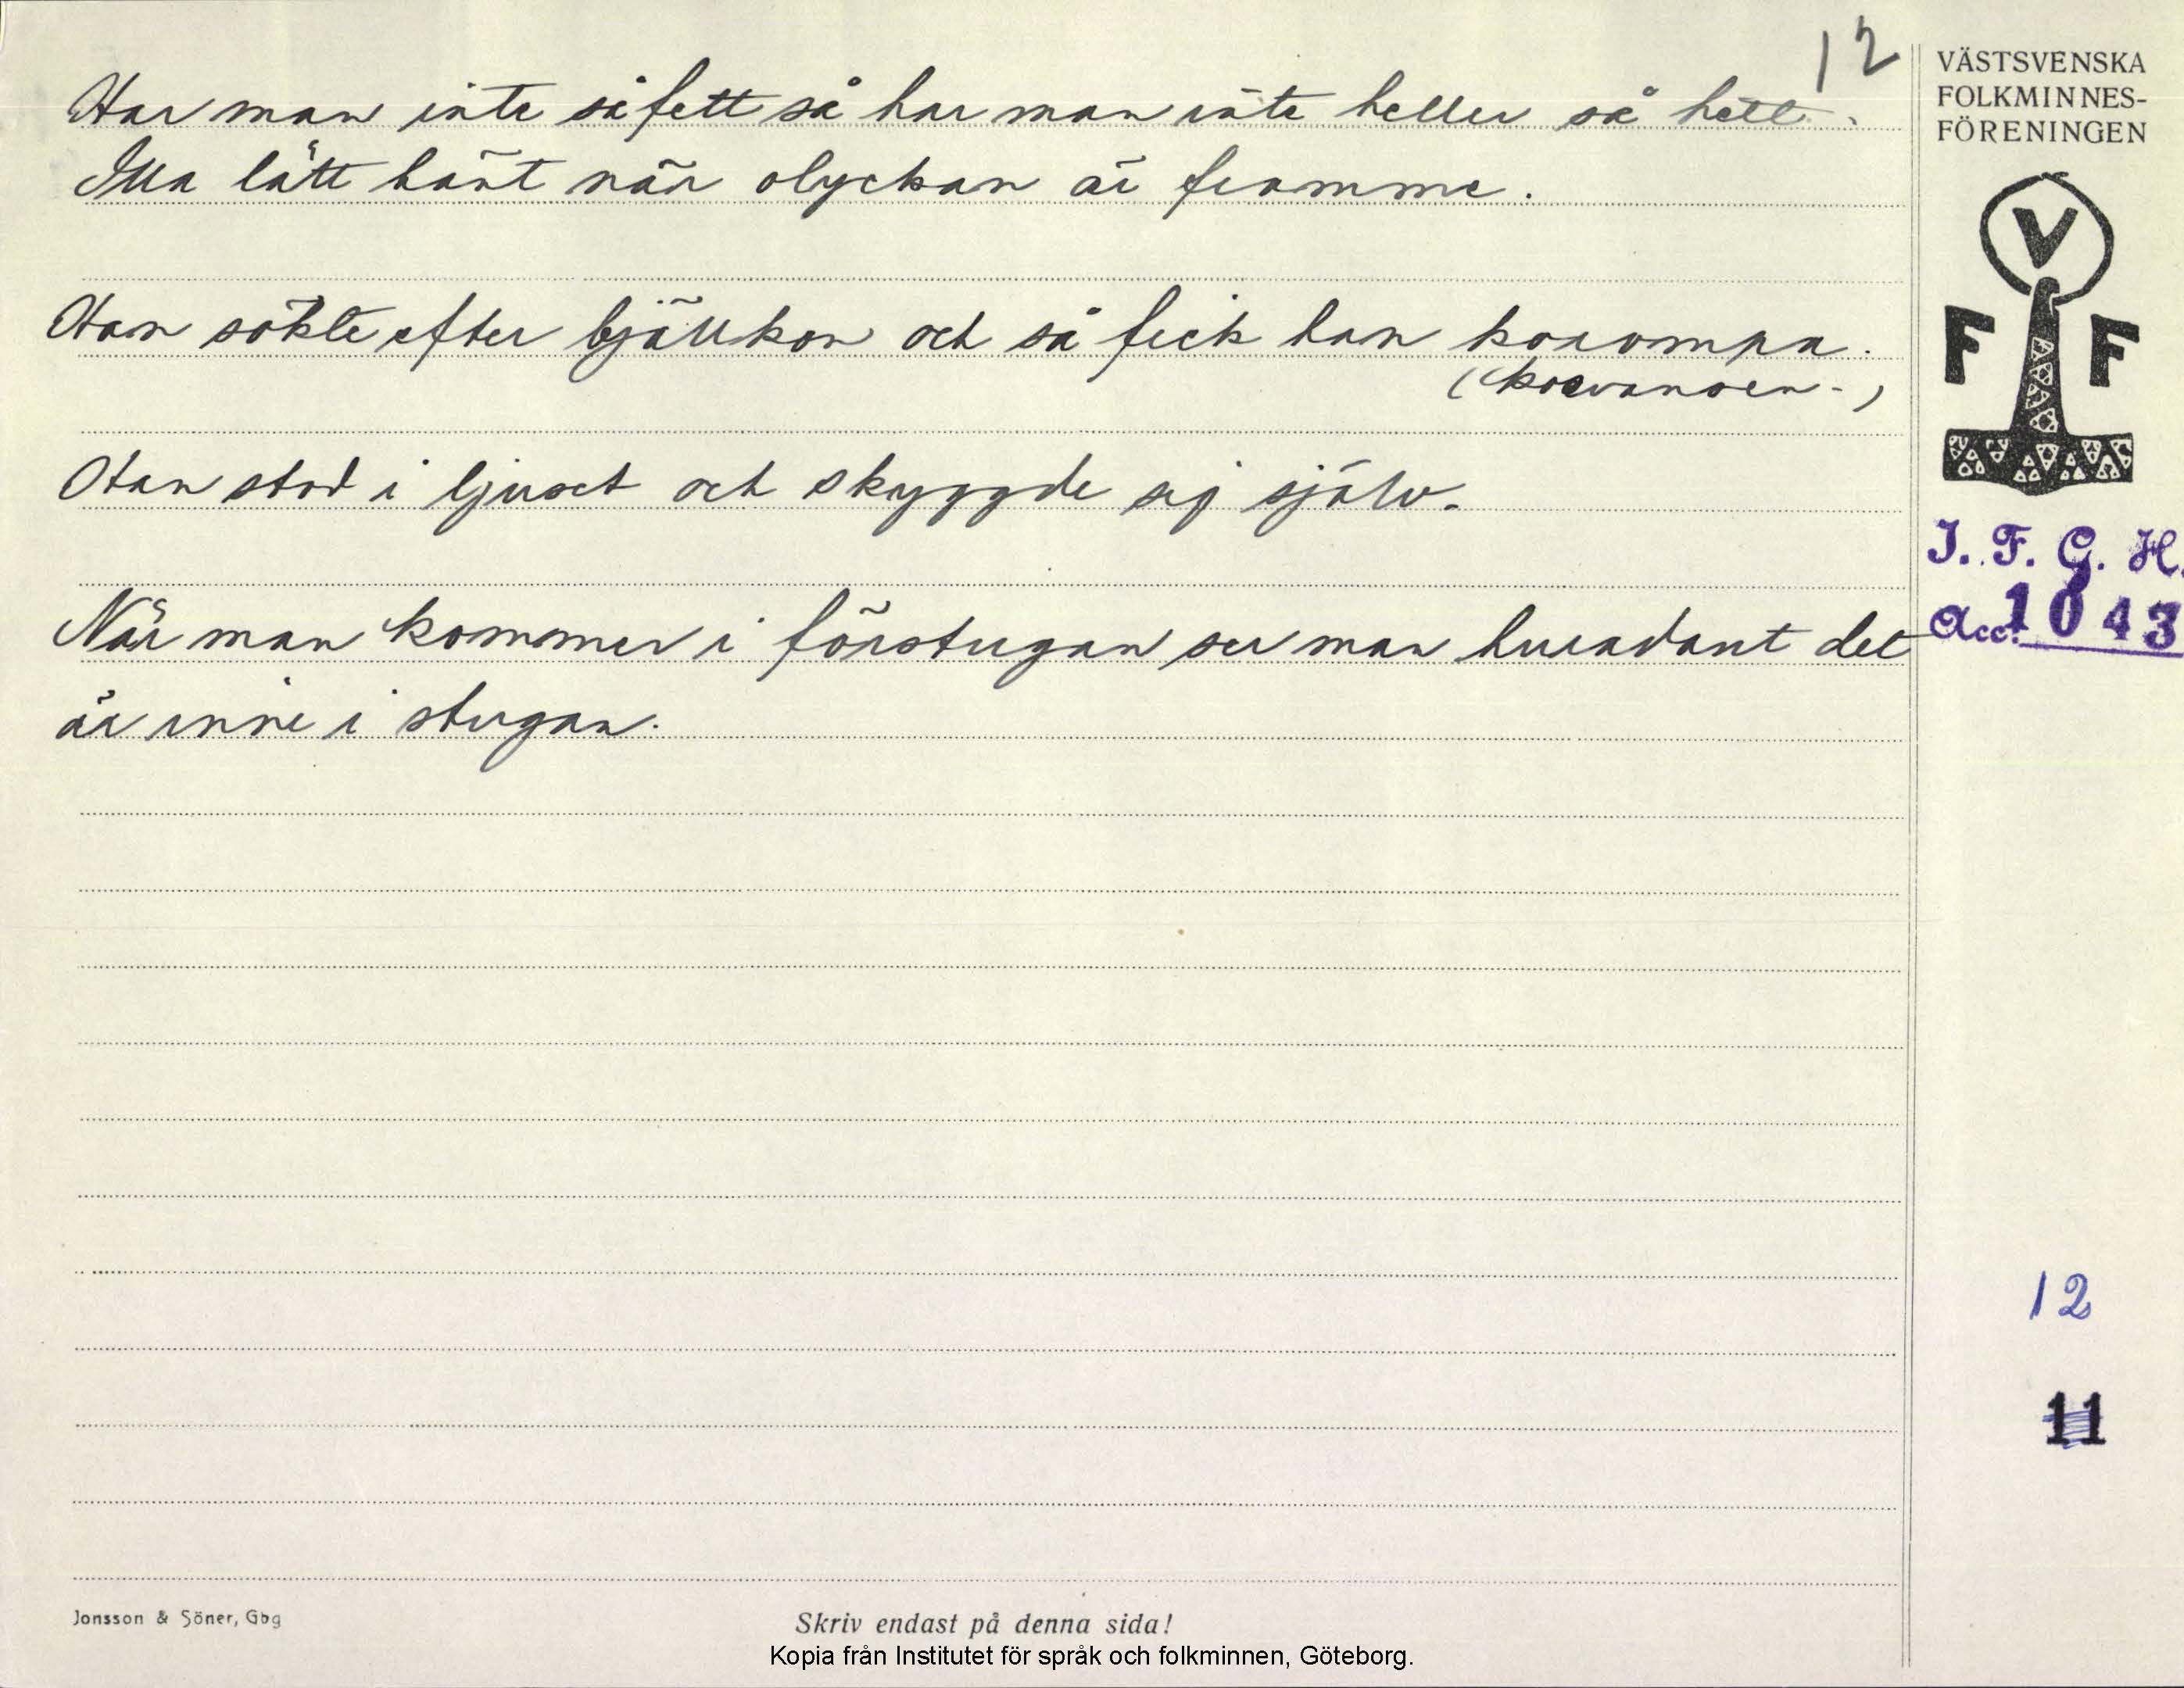 12
Har man inte så fett så har man inte heller så hett.
Illa lätt hänt när olyckan är framme.
Han sökte efter bjällkon och så fick han korompa.
Han stod i ljuset och skyggde sig själv.
När man kommer i förstugan ser man huradant det
är inne i stugan.
VÄSTSVENSKA
FOLKMINNES-
FÖRENINGEN
V
F F
I. F. G. H.
Acc. 1043
12
11
Jonsson & Söner, Gbg
Skriv endast på denna sida!
Kopia från Institutet för språk och folkminnen, Göteborg.